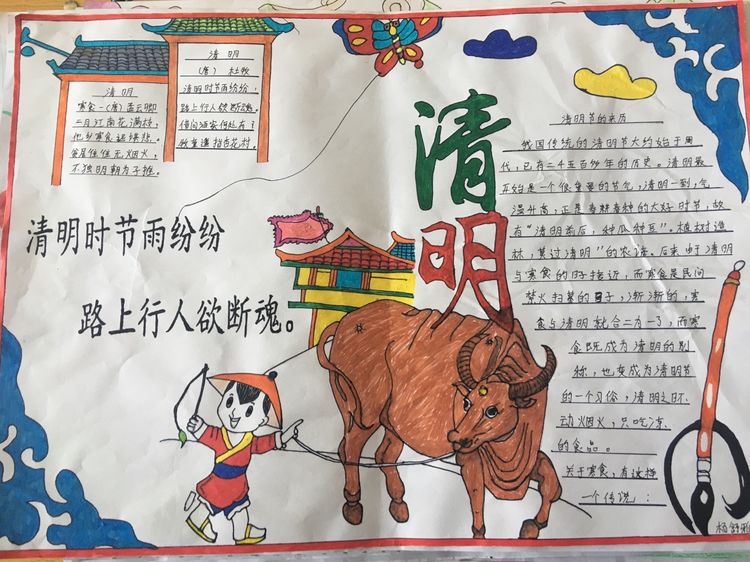 清明
寒食-(唐)孟云卿
二月江南花满枝,
他乡寒食远堪悲。
贫居往往无烟火,
不独明朝为子推。
清明
(唐) 杜牧
清明时节雨纷纷,
路上行人欲断魂。
借问酒家何处有?
牧童遥指杏花村。
清明时节雨纷纷
路上行人欲断魂。
清明
清明节的来历
我国传统的清明节大约始于周
代,已有二千五百多年的历史。清明最
开始是一个很重要的节气,清明一到,气
温升高,正是春耕春种的大好时节,故
有“清明前后,种瓜种豆”。植树造
林,莫过清明”的农谚。后来由于清明
与寒食的日子接近,而寒食是民间
禁火扫墓的日子,渐渐的,寒
食与清明就合二为一了,而寒
食既成为清明的别
称,也变成为清明节
的一个习俗,清明之日不
动烟火,只吃凉
的食品。
关于寒食,有这样
一个传说:
杨舒